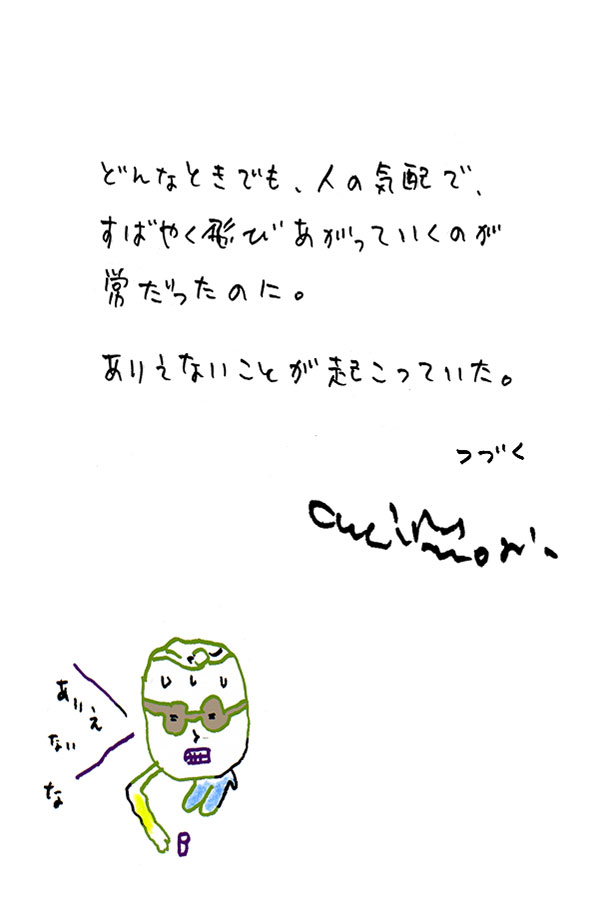 どんなときでも、人の気配で、
すばやく飛びあがっていくのが
常だったのに。
ありえないことが起こっていた。
つづく
ありえ
ない
な